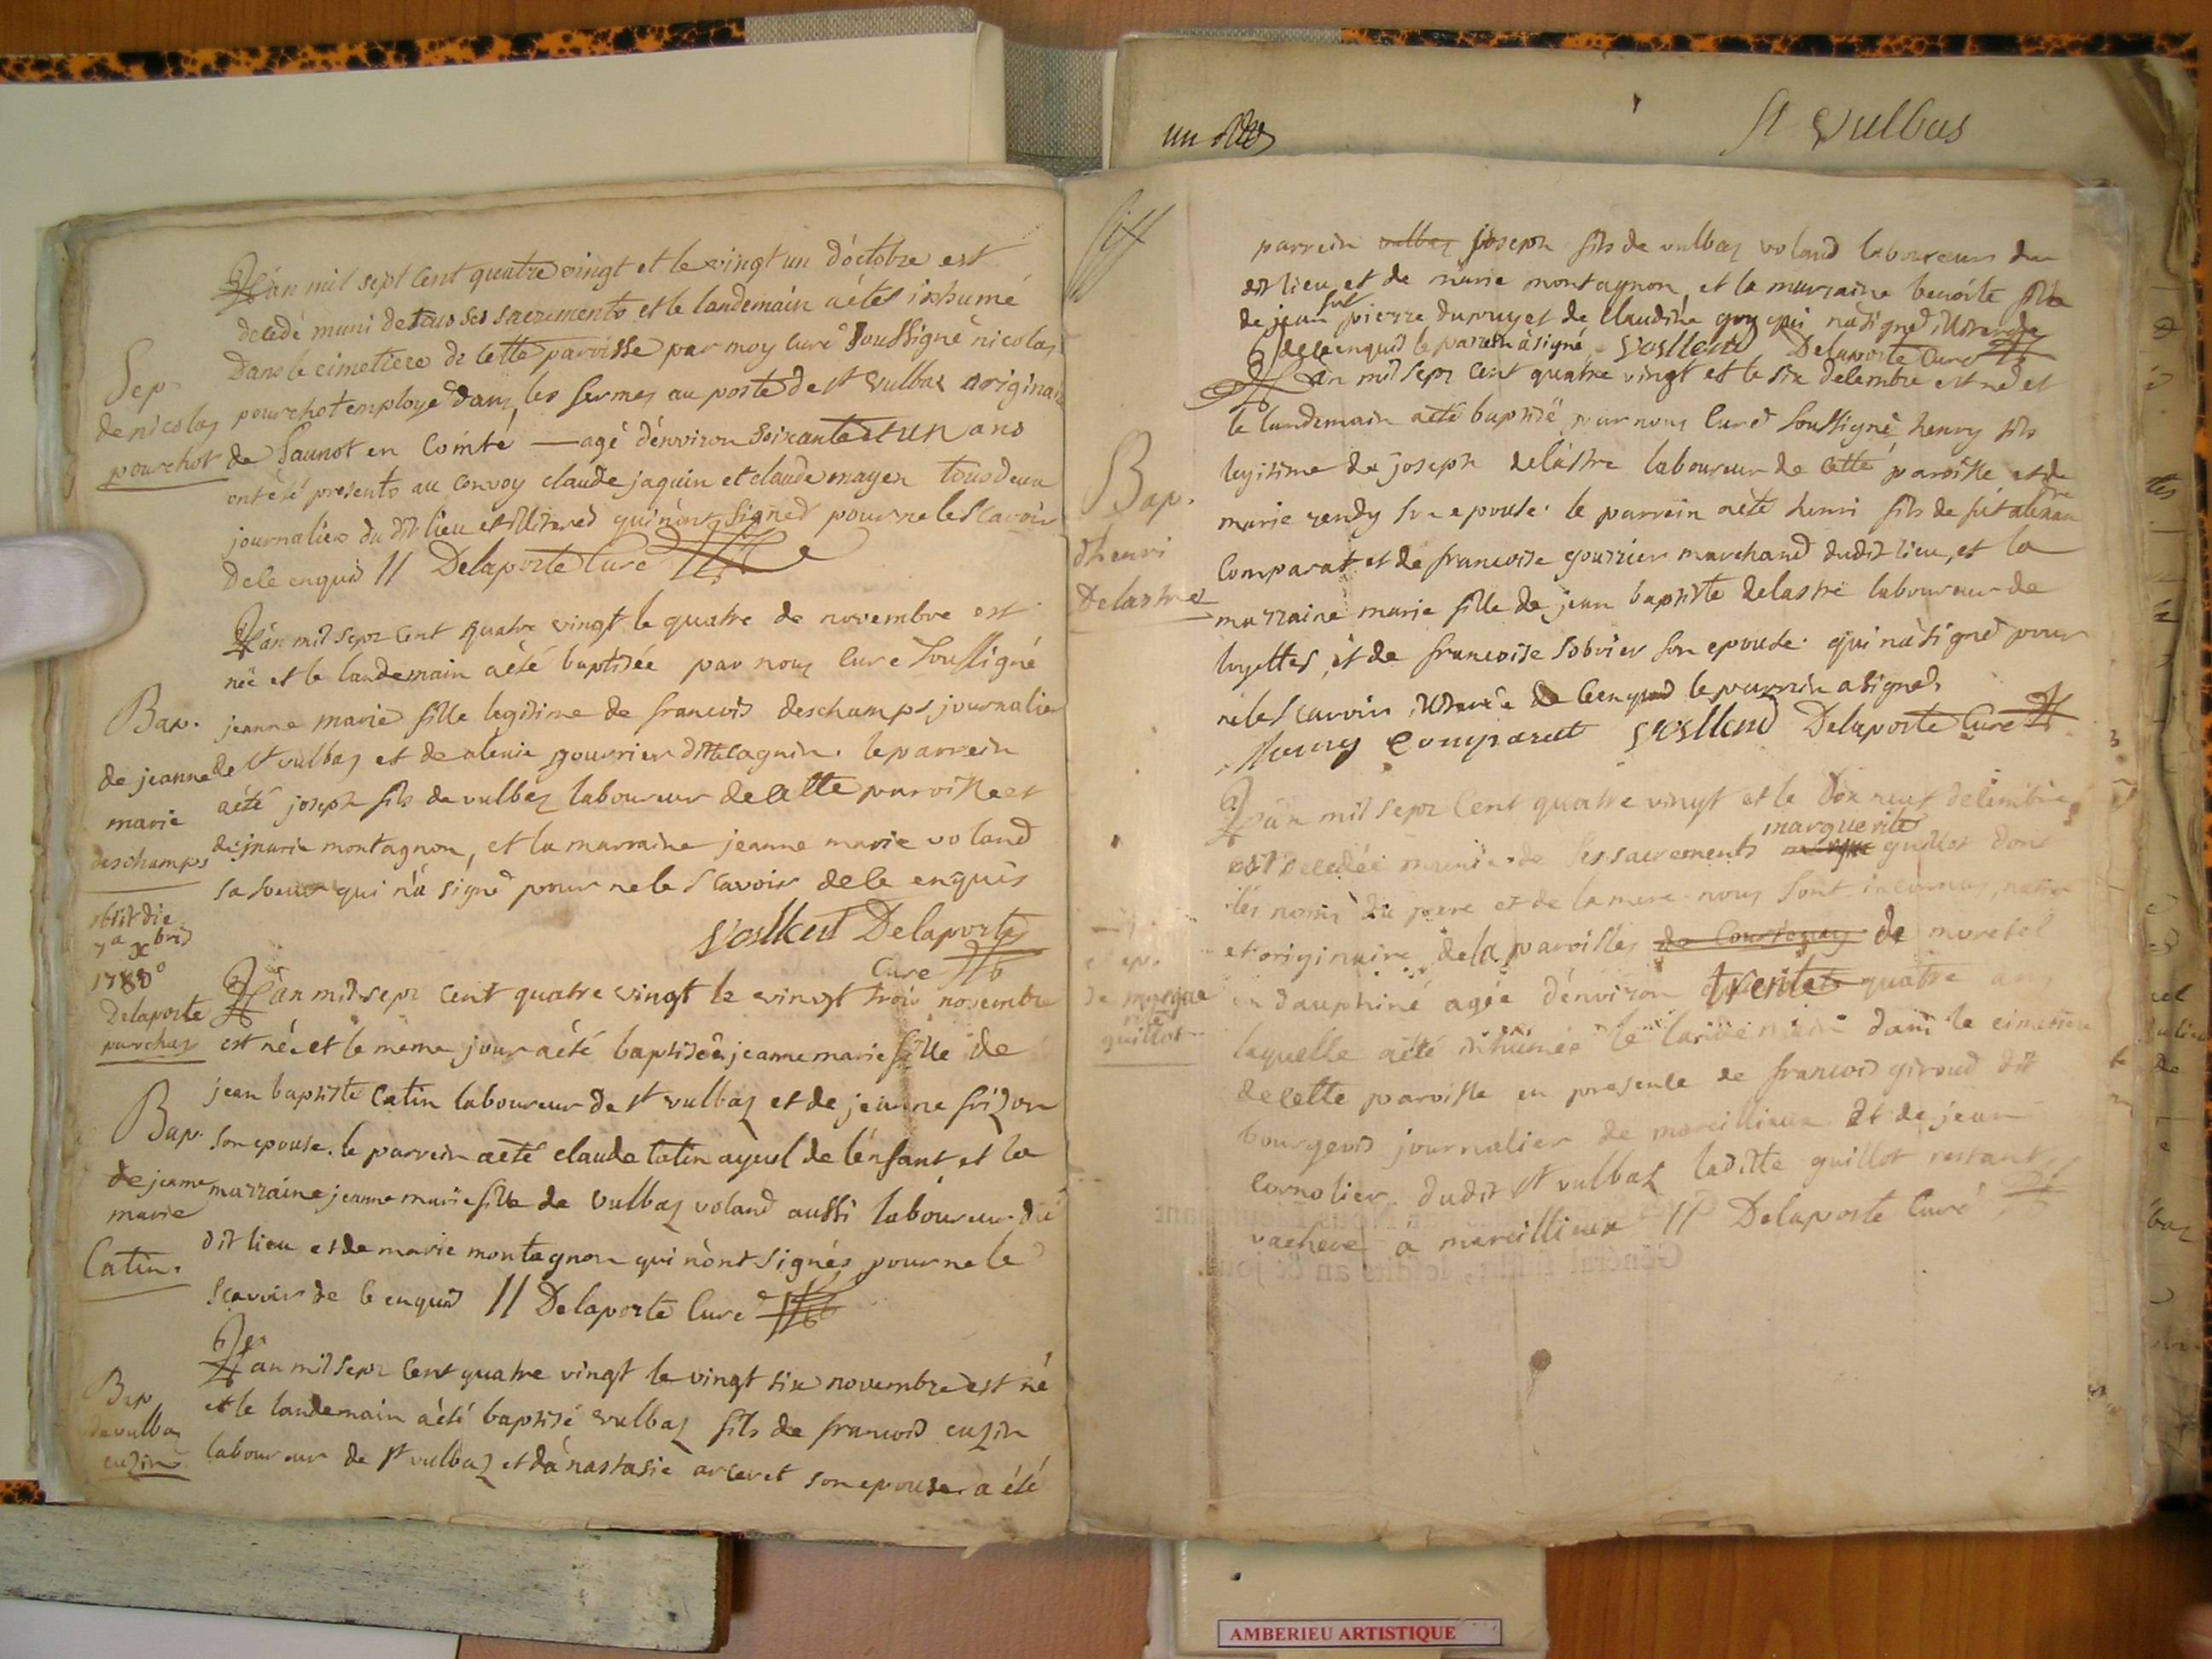 St Vulbas
L'an mil sept cent quatre vingt et le vingt un d'octobre est
decedé muni de tous ses sacrements et le landemain a étéz inhumé
Dans le cimettiere de cette paroisse par moy curé soussigné nicolas
pourchot employé dans les fermes au poste de st vulbas originaire
de Saunot en Comté — agé d'environ soixante et un ans
ont été presents au convoy claude jaquin et claude mayer tous deux
journaliers du dit lieu et illiteréd qui n'ont signéd pour ne le scavoir
De ce enquis // Delaporte Curé
Sep.
de nicolas
pourchot
L'an mil sept cent quatre vingt le quatre de novembre est
née et le landemain a été baptisée par nous curé soussigné
jeanne marie fille legitime de francois deschamps journalier
de st vulbaz et de alexie gouvrier ditte cagnin. le parrein
a été joseph fils de vulbaz laboureur de cette paroisse et
de marie montagnon, et la marraine jeanne marie voland
sa soeur qui n'a signé pour ne le scavoir de ce enquis
Vosllend Delaporte
Curé
Bap.
de jeanne
marie
deschamps
obiit die
7a xbris
1780
Delaporte
parchus
L'an mil sept cent quatre vingt le vingt trois novembre
est né et le meme jour a été baptisée jeanne marie fille de
jean baptiste Catin laboureur de st vulbaz et de jeanne frizon
son epouse. le parrein a été claude Catin ayeul de l'enfant et la
marraine jeanne marie fille de vulbaz voland aussi laboureur du
dit lieu et de marie montagnon qui n'ont signés pour ne le
scavoir de ce enquis // Delaporte Curé
Bap.
de jeanne
marie
Catin.
L'an mil sept cent quatre vingt le vingt six novembre est né
et le landemain a été baptisé vulbaz fils de francois cuzin
laboureur de st vulbaz et d'anastasie arceret son epouse a été
Bap
de vulbaz
cuzin
parrein vulbaz joseph fils de vulbaz voland laboureur du
dit lieu et de marie montagnon et la marraine benoite fille
de jean fut pierre dupuy et de Claudine goy qui n'a signéd illiterée
de ce enquis le parrein a signé Vosllend Delaporte Curé
L'an mil sept cent quatre vingt et le six decembre est né et
le landemain a été baptisé par nous curé soussigné henry fils
legitime de joseph delastre laboureur de cette paroisse et de
marie rendy son epouse. le parrein a été henri fils de fut alexandre
Comparat et de francoise gourrier marchand dudit lieu, et la
marraine marie fille de jean baptiste delastre laboureur de
loyettes, et de francoise sobrier son epouse. qui n'a signéd pour
ne le scavoir illiterée de ce enquis le parrein a signéd
Henry Comparat Vosllend Delaporte Curé
Bap.
d'henri
Delastre
L'an mil sept cent quatre vingt et le dix neuf decembre
est decedée munie de ses sacrements marguerite guillot dont
les noms du pere et de la mere nous sont inconnus, native
et originaire de la paroisse de Courtenay de moretel
en dauphiné agée d'environ trente quatre ans
laquelle a été inhumée le landemain dans le cimetiere
de cette paroisse en presence de francois giroud dit
bourgeois journalier de marcillieux et de jean
cornolier dudit st vulbas laditte guillot restant
vachere a marcillieux // Delaporte Curé
guillot
AMBERIEU ARTISTIQUE